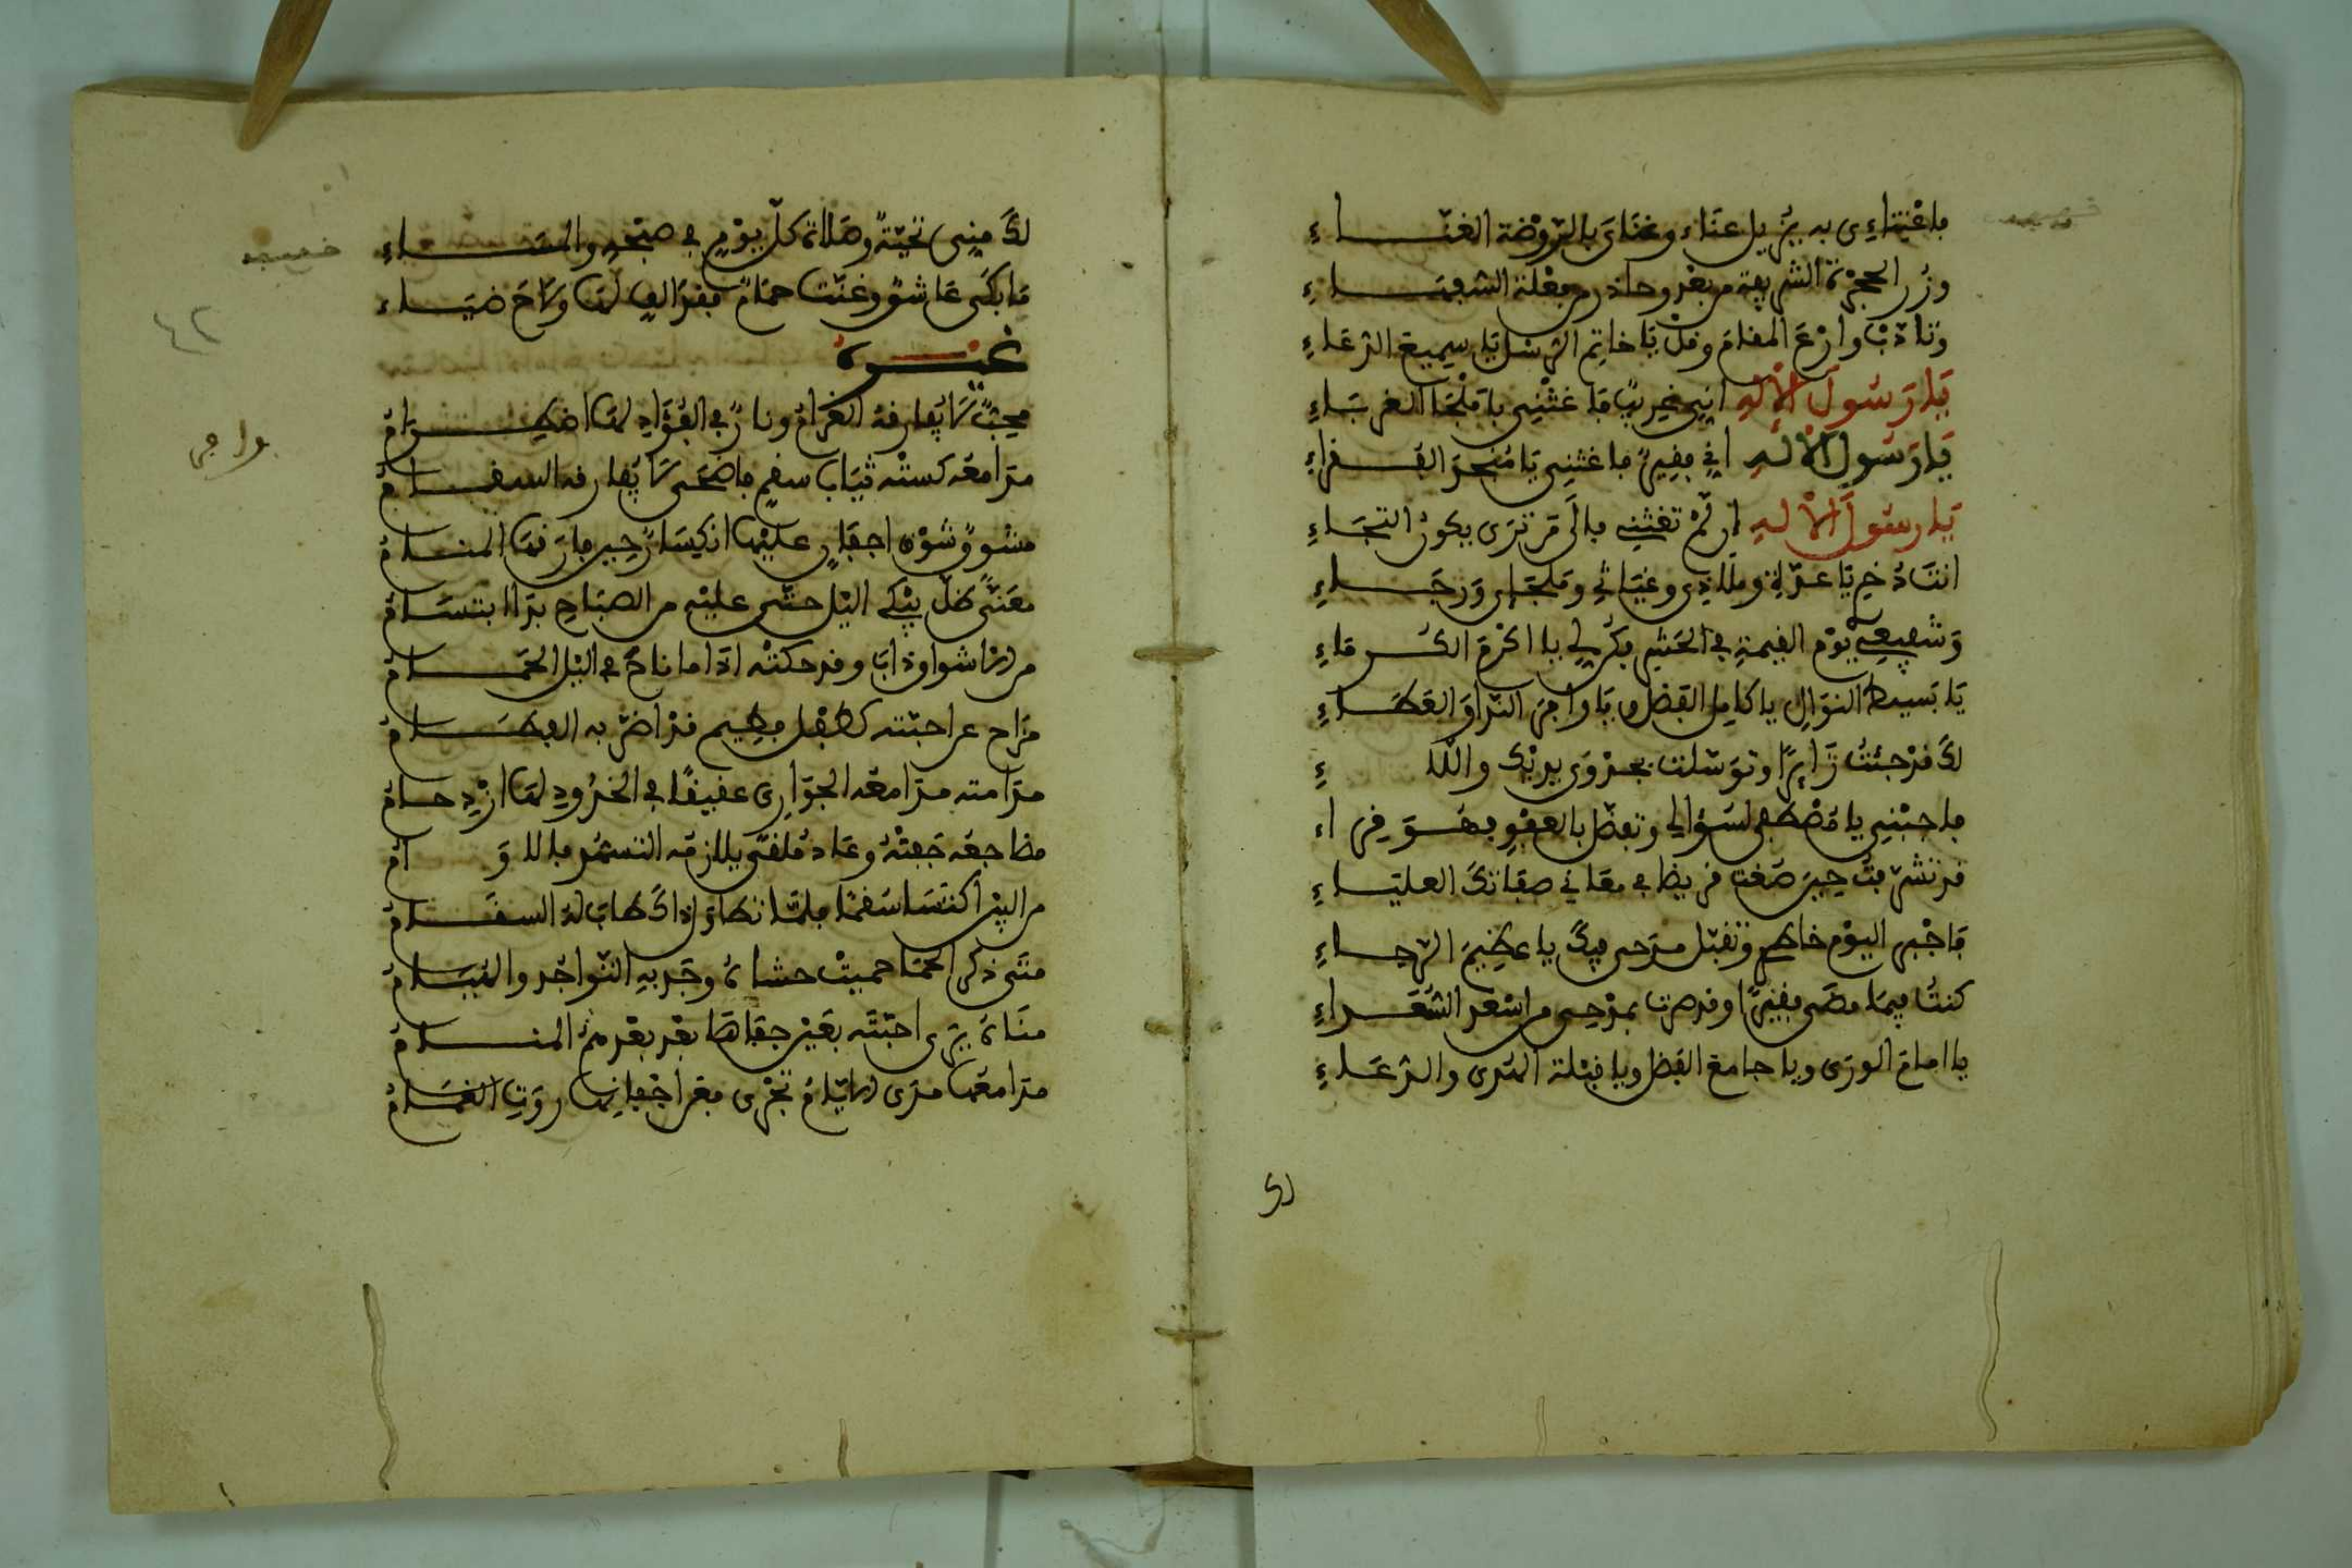 خفيف
باغتنائي به يزيل عناء وعنائي بالروضة الغناء
وزر الحجرة الشريفة من بعد وحاذر من بعلة الشفهاء
وتادب وادع المقام وقل يا خاتم الرسل يا سميع الدعاء
يا رسول الاله اني غريب فاغثني يا ملجا الغرباء
يا رسول الاله اني فقير فاغثني يا منجد الفقراء
يا رسول الاله ان لم تغثني فالى من ترى يكون التجاء
انت ذخري يا عدتي وملاذي وغياثي وملجاي ورجاء
وشفيعي يوم القيمة في الحشر فكن لي يا اكرم الكرماء
يا بسيط النوال يا كامل الفضل ويا وافر الندا والعطاء
لك قد جئت زايرا وتوسلت بجدوى يديك والالاء
فاجبني يا مصطفى لسؤالي وتفضل بالعفو فهو قراء
قد تشرفت حين صغت قريظا في معاني صفاتك العلياء
فاجبر اليوم خاطري وتقبل مدحي فيك يا عظيم الرجاء
كنت فيما مضى فقيرا وقد صرت بمدحي من اسعد الشعراء
يا امام الورى ويا جامع الفضل ويا قبلة الندى والدعاء
لك مني تحية وصلاة كل يوم في صبحه والمساء
ما بكى عاشق وغنت حمام فقد الف لها ولاح ضياء
غيره
محب لا يفارقه الغرام ونار في الفؤاد لها اضطرام
وافر
٤٢
مدامعه كسته ثياب سقم فاضحى لا يفارقه السقام
مشوق شوق اجفان عليها انكسار حين فارقها المنام
معنى ظل يبكي اليل حتى عليه من الصباح بدا ابتسام
من الاشواق ذاب وقد حكته اذا ما ناح في اليل الحمام
مراح عن احبته كطفل فطيم قد اضر به الفطام
مدامته مدامعه الجواري عقيقا في الخدود لها ازدحام
مضاجعه جفته وعاد ملقى يلازمه التسهد بالدوام
من البين اكتسا سقما فلما تطاول ذاك طاب له السقام
متى ذكر الحما حميت حشاه وجد به التواجد والهيام
مناه يرى احبته بعين جفاها بعد بعدهم المنام
مدامعها مدى الايام تجري فعن اجفانها روت الغمام